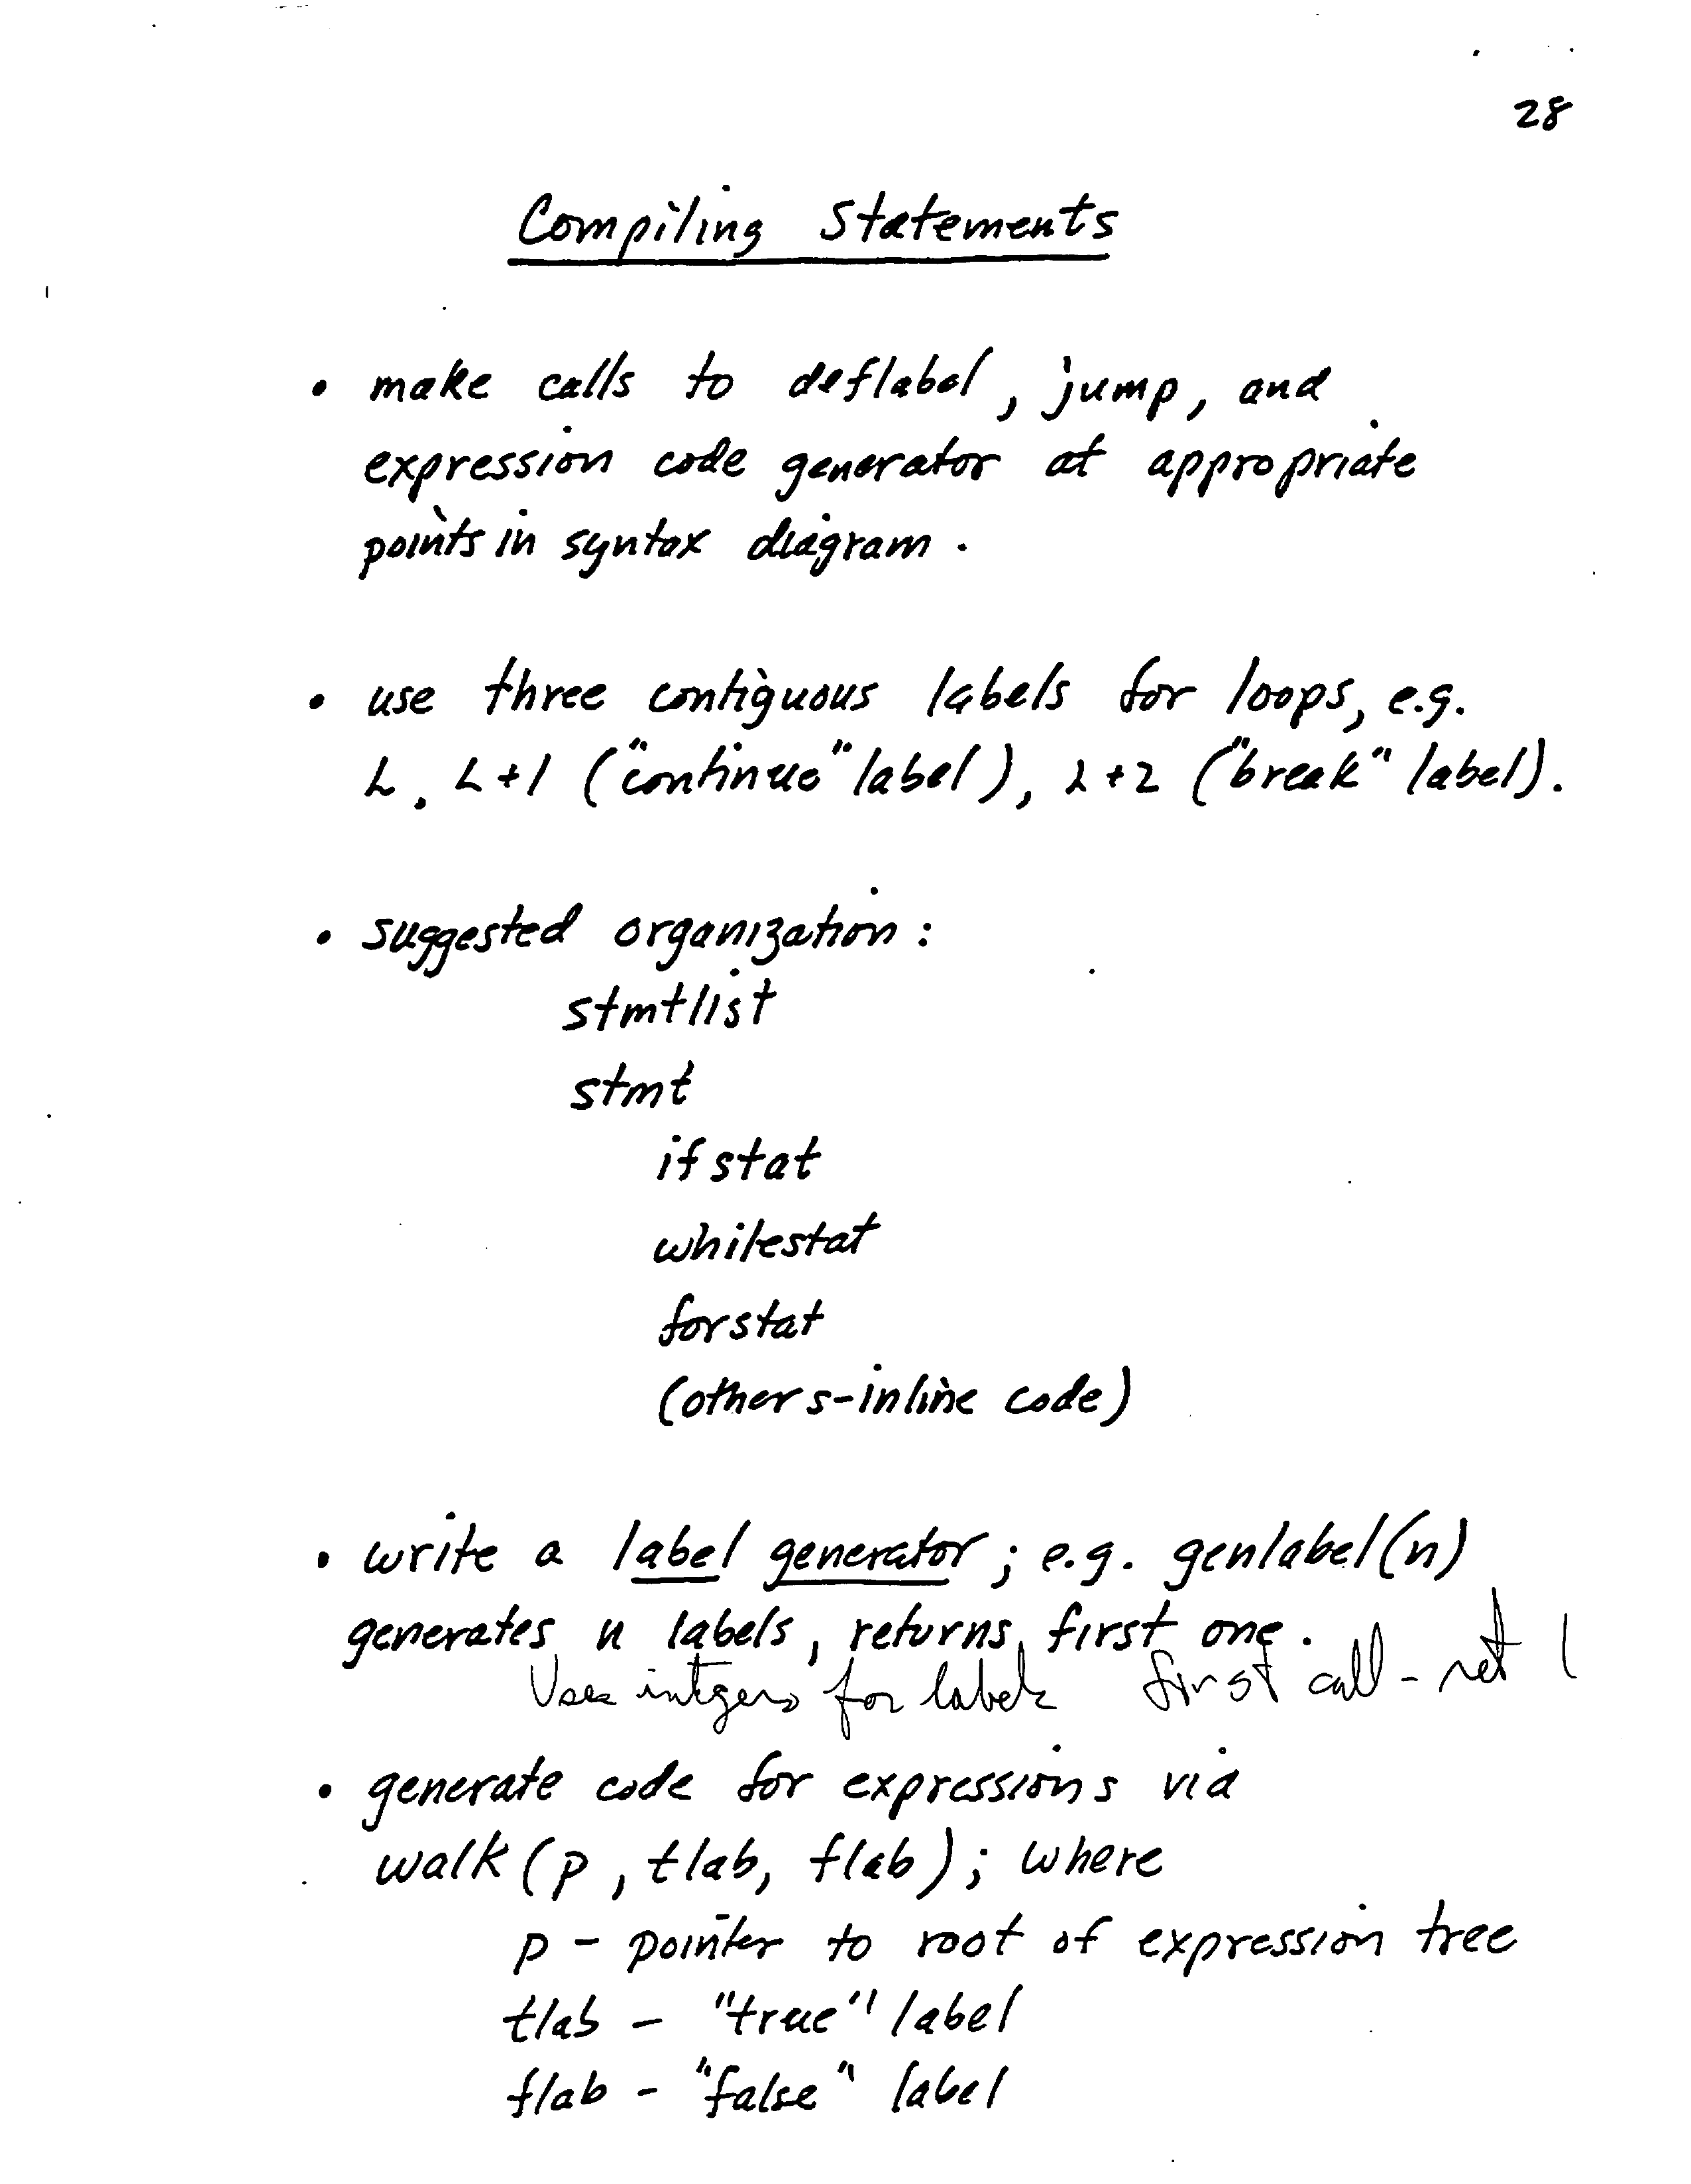 28
Compiling Statements
• make calls to deflabel, jump, and
expression code generator at appropriate
points in syntax diagram.
• use three contiguous labels for loops, e.g.
L, L+1 ("continue" label), L+2 ("break" label).
• suggested organization:
stmtlist
stmt
ifstat
whilestat
forstat
(others-inline code)
• write a label generator; e.g. genlabel(n)
generates n labels, returns first one.
Use integers for labels first call - ret 1
• generate code for expressions via
walk(p, tlab, flab); where
p - pointer to root of expression tree
tlab - "true" label
flab - "false" label